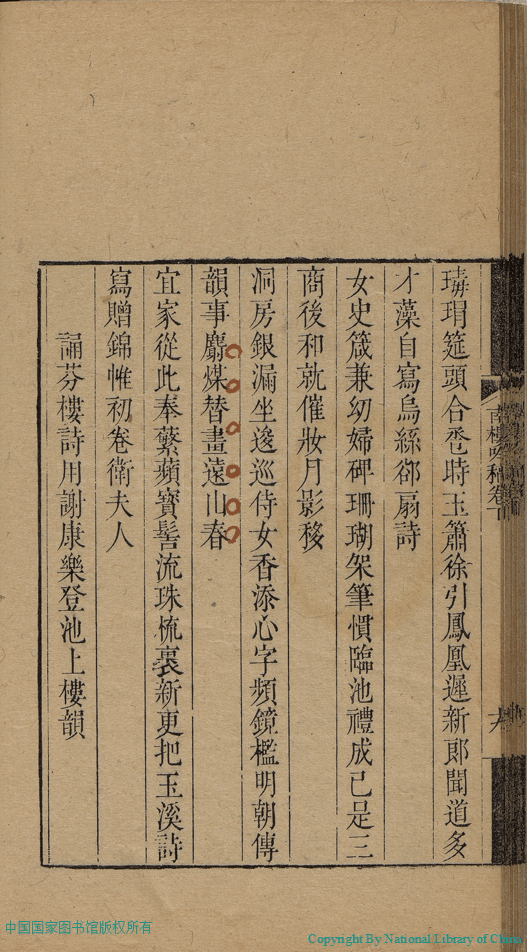 瑇瑁筵頭合巹時玉簫徐引鳳凰遲新郎聞道多
才藻自寫烏絲卻扇詩
女史箴兼幼婦碑珊瑚架筆慣臨池禮成已是三
商後和就催妝月影移
洞房銀漏坐逡巡侍女香添心字頻鏡檻明朝傳
韻事麝煤替畫遠山春
宜家從此奉蘩蘋寶髻流珠梳裹新更把玉溪詩
寫贈錦帷初卷衛夫人
誦芬樓詩用謝康樂登池上樓韻
南樓吟稿卷下
中国国家图书馆版权所有
Copyright By National Library of China